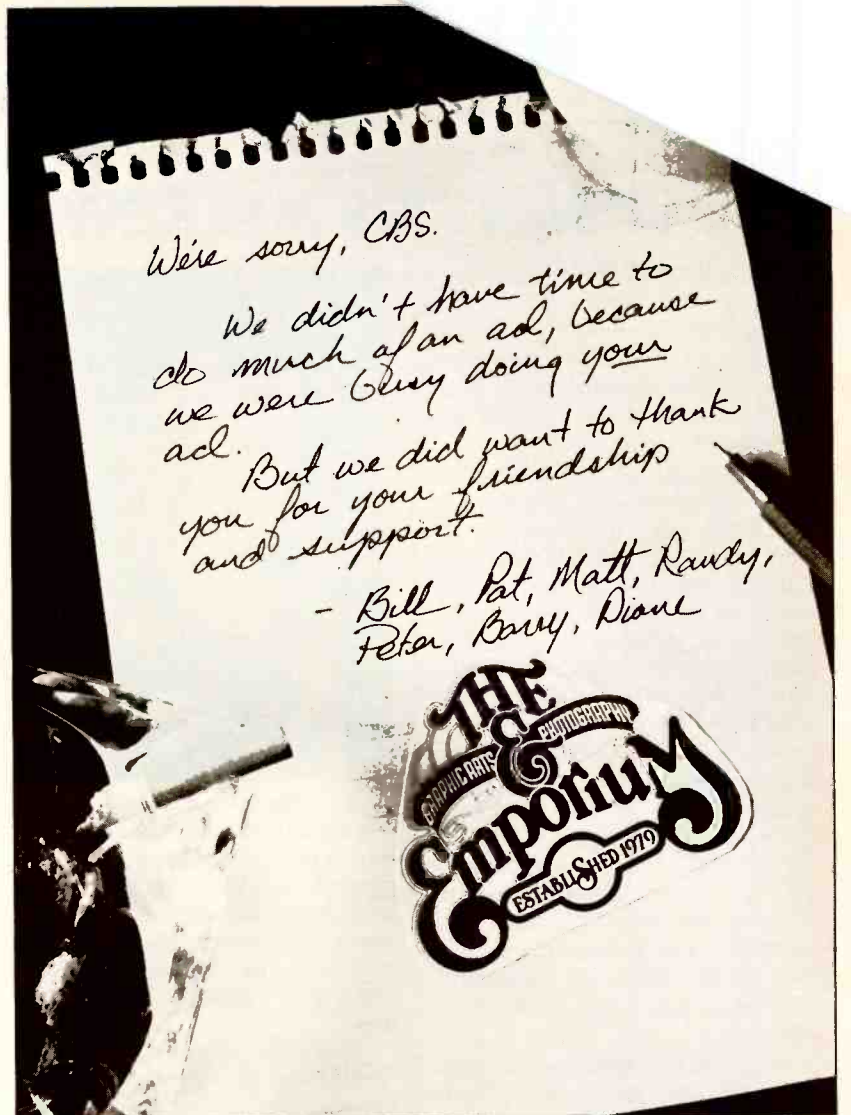 We're sorry, CBS.
We didn't have time to
do much of an ad, because
we were busy doing your
ad.
But we did want to thank
you for your friendship
and support.
- Bill, Pat, Matt, Randy,
Peter, Barry, Diane
THE
GRAPHIC ARTS & PHOTOGRAPHY
EmporiuM
ESTABLISHED 1979